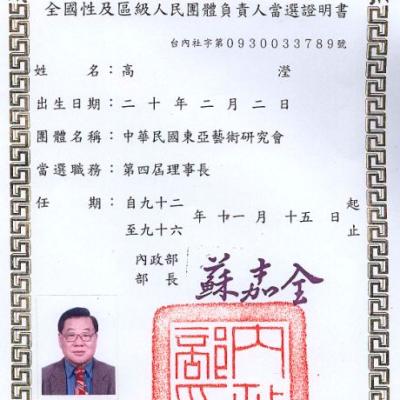 全國性及區級人民團體負責人當選證明書
台內社字第0930033789號
姓名：高瀅
出生日期：二十年二月二日
團體名稱：中華民國東亞藝術研究會
當選職務：第四屆理事長
任期：自九十二年十一月十五日起
至九十六年十一月十五日止
內政部
部長
蘇嘉全